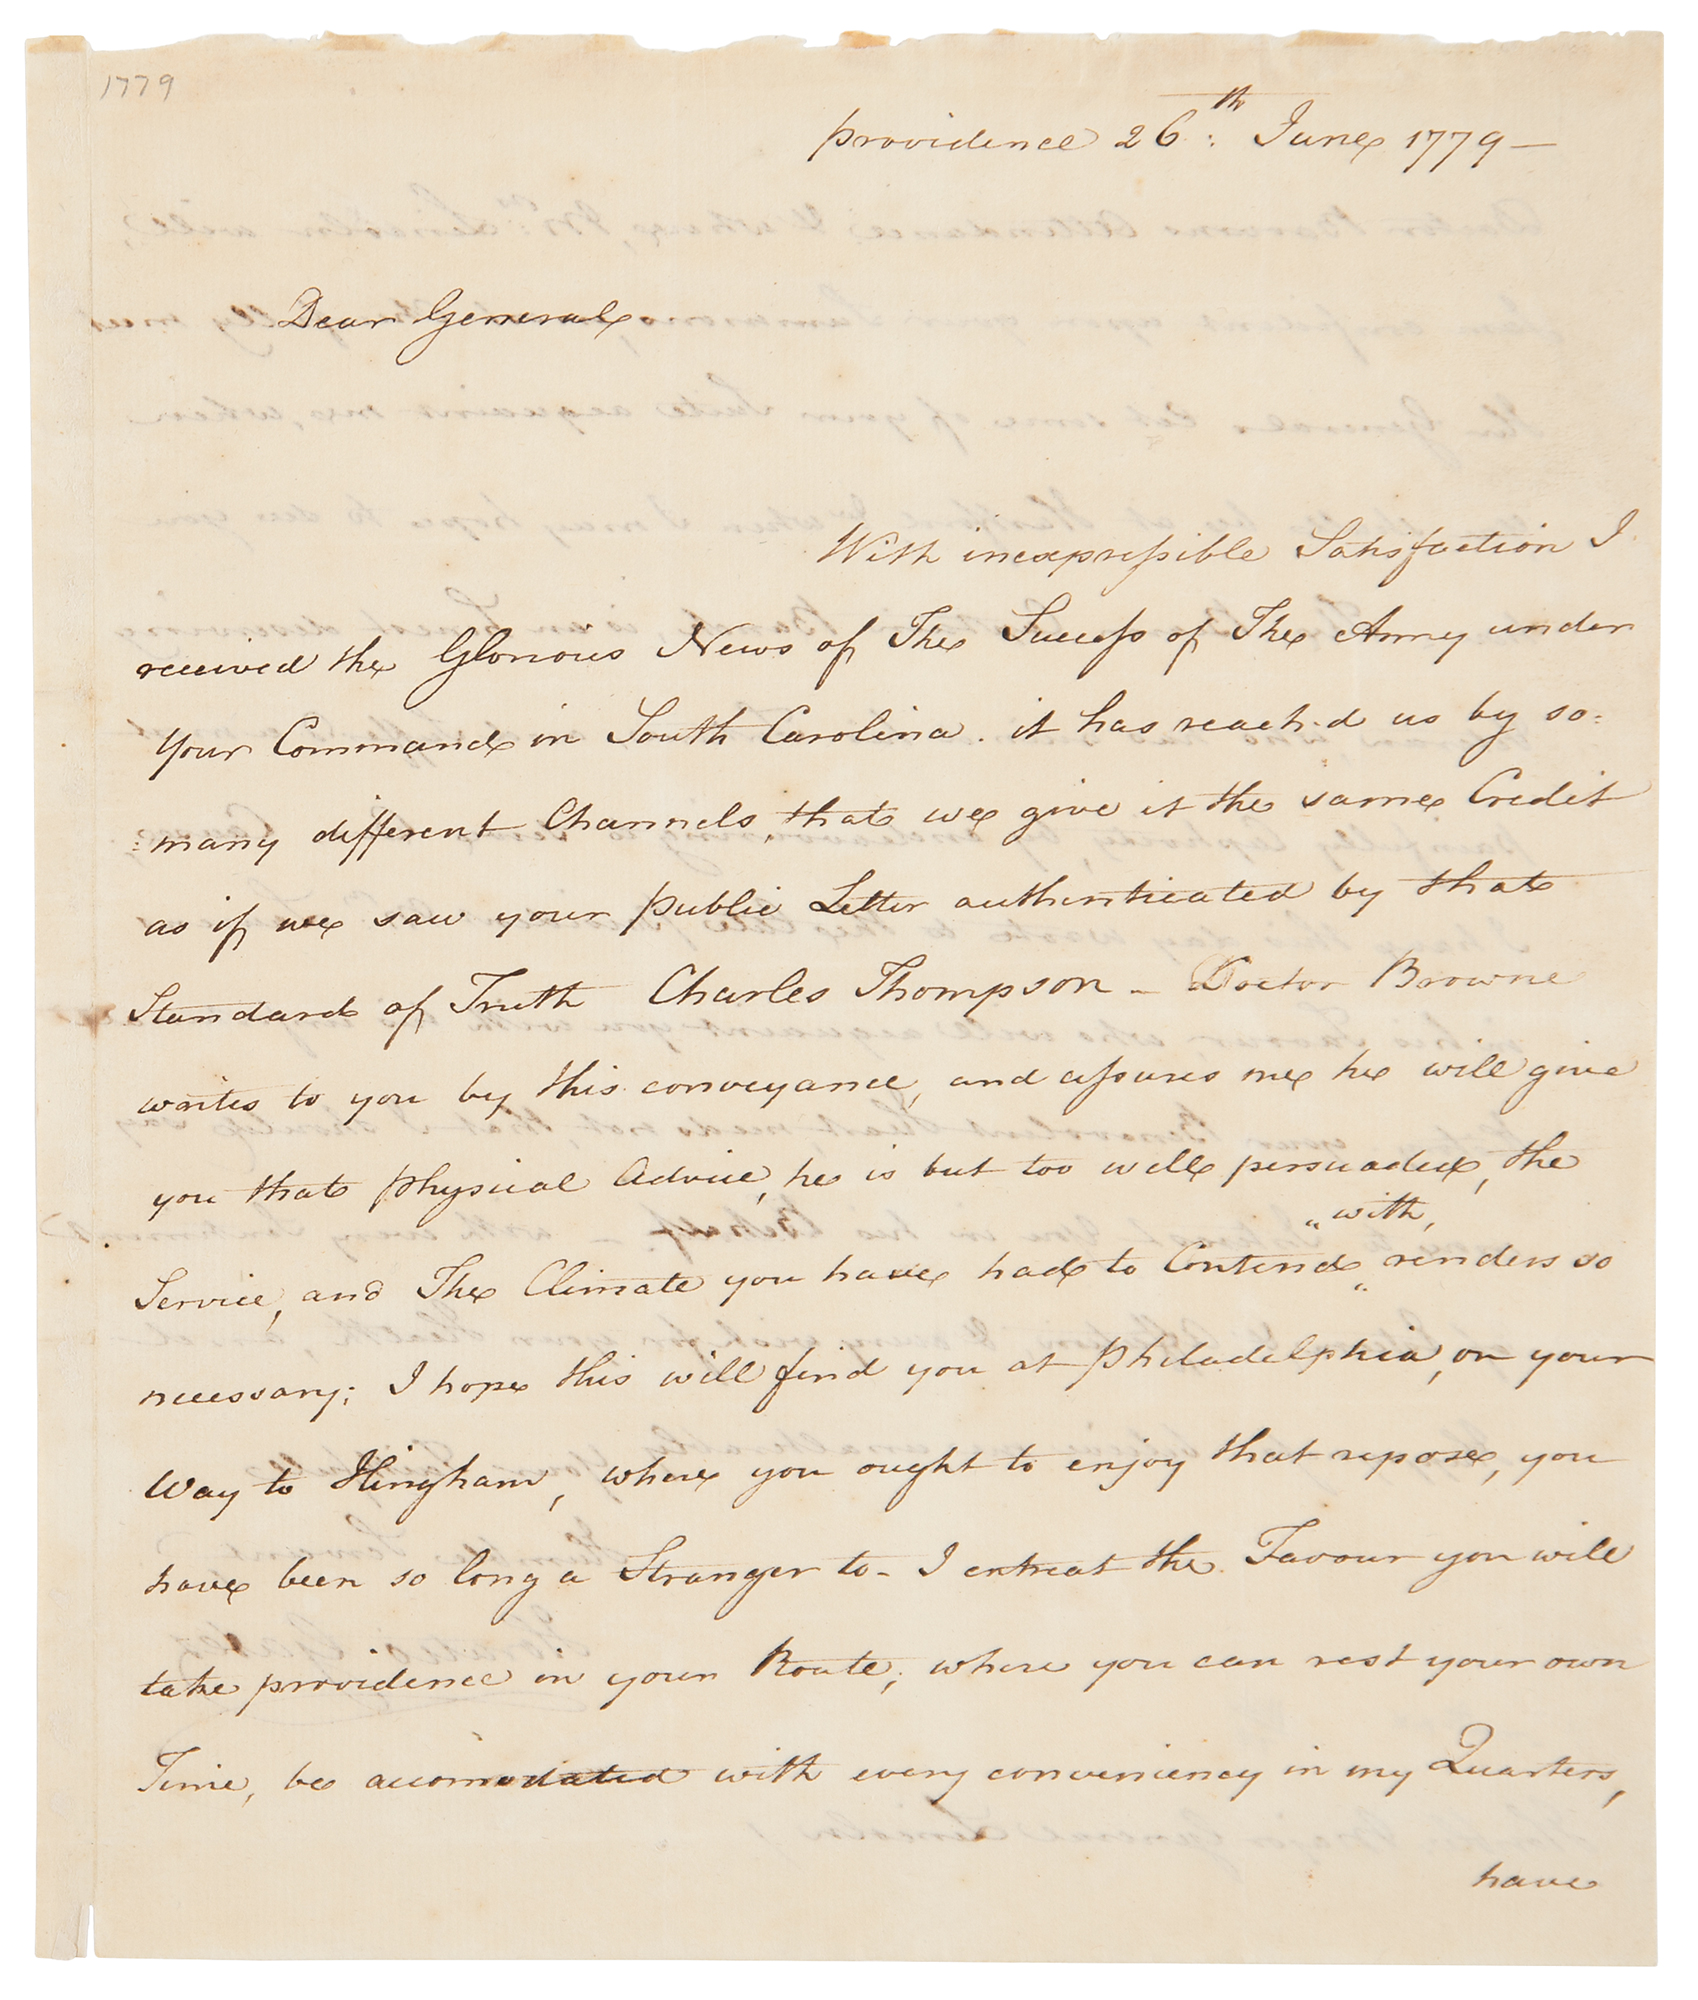 1779
providence 26:th June 1779 —
Dear General
With inexpressible Satisfaction I
received the Glorious News of The Success of The Army under
your Command in South Carolina. it has reach'd us by so:
:many different Channels, that we give it the same Credit
as if we saw your public Letter authenticated by that
Standard of Truth Charles Thompson – Doctor Browne
writes to you by this conveyance, and assures me he will give
you that physical Advice, he is but too well persuaded, the
"with,
Service, and The Climate you have had to Contend " renders so
necessary; I hope this will find you at philadelphia, on your
Way to Hingham, where you ought to enjoy that repose, you
have been so long a Stranger to – I entreat the Favour you will
take providence in your Route, where you can rest your own
Time, be accomodated with every conveniency in my Quarters,
have